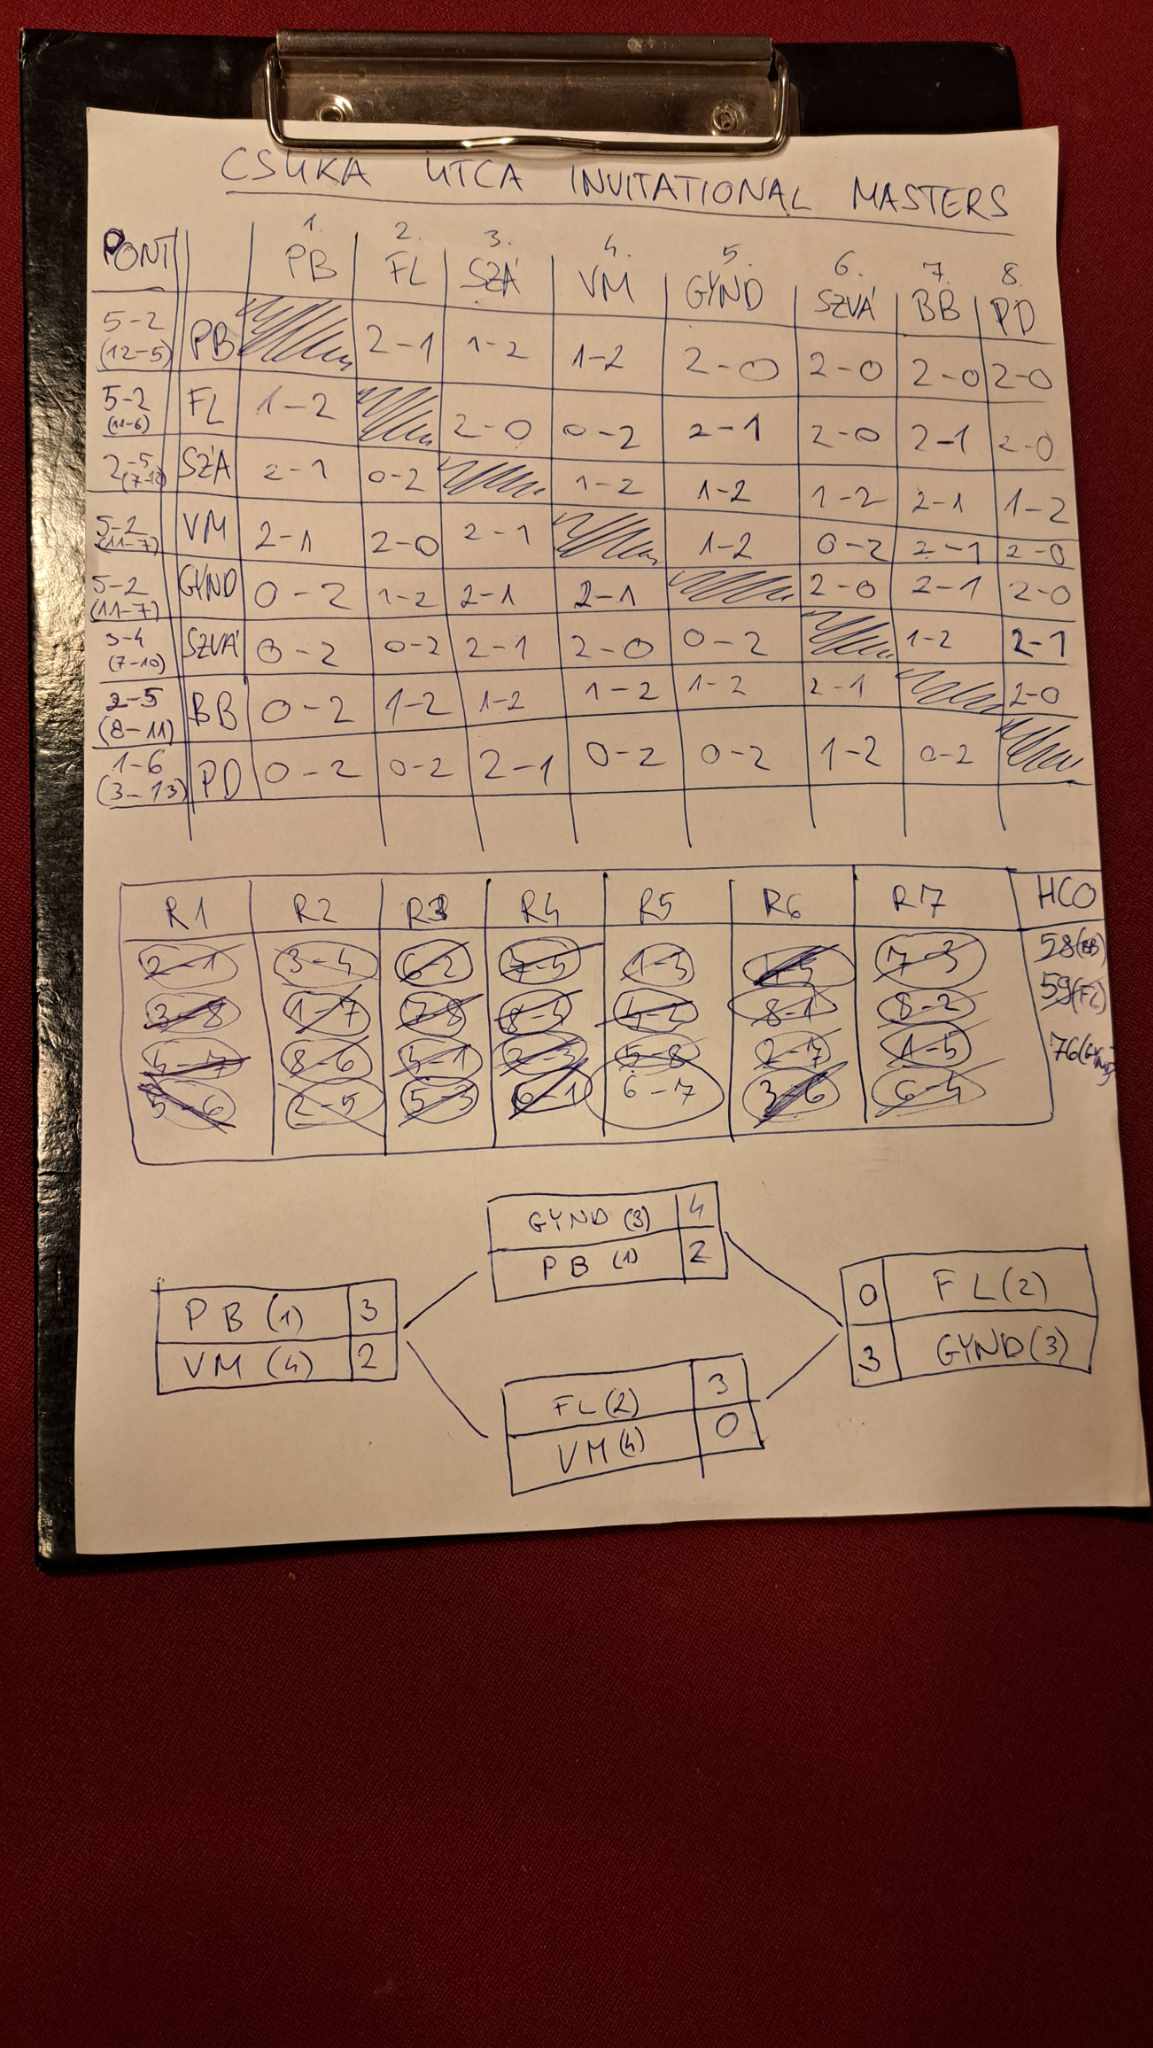 CSUKA UTCA INVITATIONAL MASTERS
PONT 1. PB 2. FL 3. SZÁ 4. VM 5. GYND 6. SZVÁ 7. BB 8. PD
5-2 (12-5) PB 2-1 1-2 1-2 2-0 2-0 2-0 2-0
5-2 (11-6) FL 1-2 2-0 0-2 2-1 2-0 2-1 2-0
2-5 SZÁ 2-1 0-2 1-2 1-2 1-2 2-1 1-2
5-2 (11-7) VM 2-1 2-0 2-1 1-2 0-2 2-1 2-0
5-2 (11-7) GYND 0-2 1-2 2-1 2-1 2-0 2-1 2-0
3-4 (7-10) SZVÁ 0-2 0-2 2-1 2-0 0-2 1-2 2-1
2-5 (8-11) BB 0-2 1-2 1-2 1-2 1-2 2-1 2-0
1-6 (3-13) PD 0-2 0-2 2-1 0-2 0-2 1-2 0-2
R1 R2 R3 R4 R5 R6 R7 HCO
2-1 3-4 6-2 7-5 1-3 7-3 58(BB)
3-8 1-7 7-8 4-2 8-1 8-2 59(FL)
4-7 8-6 5-8 2-7 1-5 76(GYND)
5-6 2-5 5-3 6-1 6-7 3-6 6-4
GYND (3) 4
PB (1) 2
PB (1) 3
VM (4) 2
0 FL (2)
3 GYND (3)
FL (2) 3
VM (4) 0